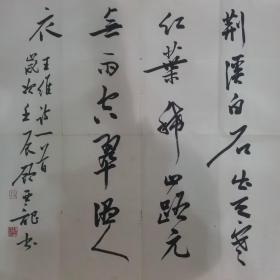 荆溪白石出天寒
红叶稀山路元
无雨空翠湿人
衣
王维诗一首
岁次壬辰
书